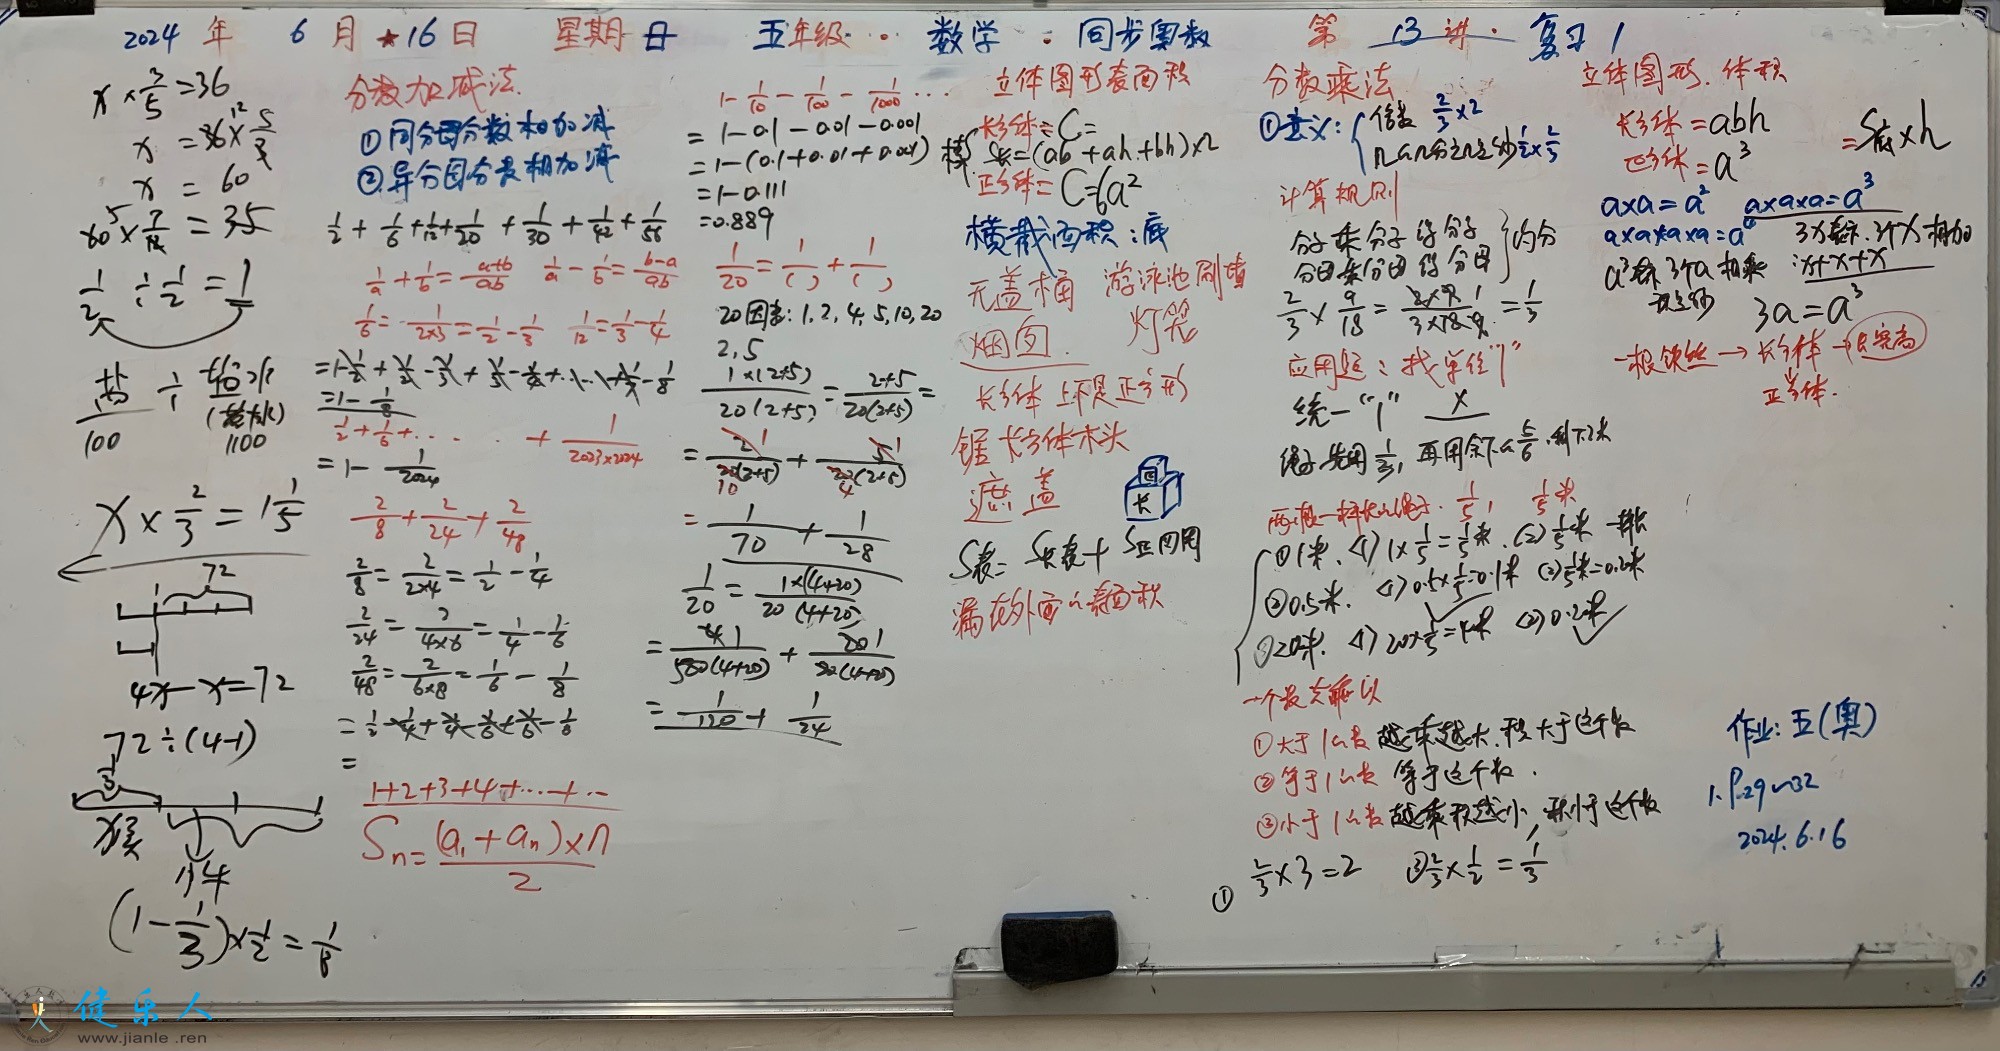 2024 年 6 月 16 日 星期日 五年级 数学 同步奥数 第 13 讲 复习 1
x × 3/5 = 36
x = 36 × 5/3
x = 60
60 × 7/12 = 35
1/2 ÷ 1/2 = 1
盐 ÷ 盐水
100 1100
x × 2/3 = 1 1/5
72
4x - x = 72
72 ÷ (4-1)
1/3
14
(1 - 1/3) × 1/2 =
分数加减法
① 同分母分数相加减
② 异分母分数相加减
1/2 + 1/6 + 1/12 + 1/20 + 1/30 + 1/42 + 1/56
1/a + 1/b = a+b/ab 1/a - 1/b = b-a/ab
1/6 = 1/2×3 = 1/2 - 1/3 1/12 = 1/3 - 1/4
= 1 - 1/8
1/2 + 1/6 + …… + 1/2023×2024
= 1 - 1/2024
2/8 + 2/24 + 2/48
2/8 = 2/2×4 = 1/2 - 1/4
2/24 = 2/4×6 = 1/4 - 1/6
2/48 = 2/6×8 = 1/6 - 1/8
= 1/2 - 1/4 + 1/4 - 1/6 + 1/6 - 1/8
=
1+2+3+4+…+…
Sn = (a₁ + an) × n / 2
1 - 1/10 - 1/100 - 1/1000 …
= 1 - 0.1 - 0.01 - 0.001
= 1 - (0.1 + 0.01 + 0.001)
= 1 - 0.111
= 0.889
1/20 = 1/( ) + 1/( )
20因数: 1, 2, 4, 5, 10, 20
2, 5
1×(2+5)/20(2+5) = 2+5/20(2+5) =
= 2/20(2+5) + 5/20(2+5)
= 1/70 + 1/28
1/20 = 1×(4+20)/20(4+20)
= 1/120 + 1/24
立体图形表面积
长方体 = C =
S长 = (ab + ah + bh) × 2
正方体 = C = 6a²
横截面积: 底
无盖桶 游泳池刷墙
烟囱 灯笼
长方体 上下是正方形
锯长方体木头
遮盖
长
S表 = S长表 + S正四周
漏在外面的表面积
分数乘法
① 意义: 倍数 2/3 × 2
几的几分之几是多少 1/2 × 2/3
计算规则
分子乘分子得分子
分母乘分母得分母
约分
2/3 × 9/18 = 2×9/3×18 = 1/3
应用题: 找单位"1"
统一"1" x
绳子先用 1/3, 再用余下的 5/6, 剩下2米
两根一样长的绳子, 1/5, 1/5米
① 1米. (1) 1 × 1/5 = 1/5米. (2) 1/5米 一样长
② 0.5米. (1) 0.5 × 1/5 = 0.1米 (2) 1/5米 = 0.2米
③ 20米. (1) 20 × 1/5 = 4米 (2) 0.2米
一个数去乘以
① 大于1的数 越乘越大, 积大于这个数
② 等于1的数 等于这个数.
③ 小于1的数 越乘积越小, 积小于这个数
① 2/3 × 3 = 2 ③ 2/3 × 1/2 = 1/3
立体图形. 体积
长方体 = abh
正方体 = a³
= S底 × h
a×a = a² a×a×a = a³
a×a×a×a = a⁴ 3x表示 3个x相加
a³表示 3个a相乘 : x+x+x
3a = a³
一根铁丝 → 长方体 →
正方体.
作业: 五(奥)
1. P.29~32
2024. 6. 16
健乐人
www.jianle.ren